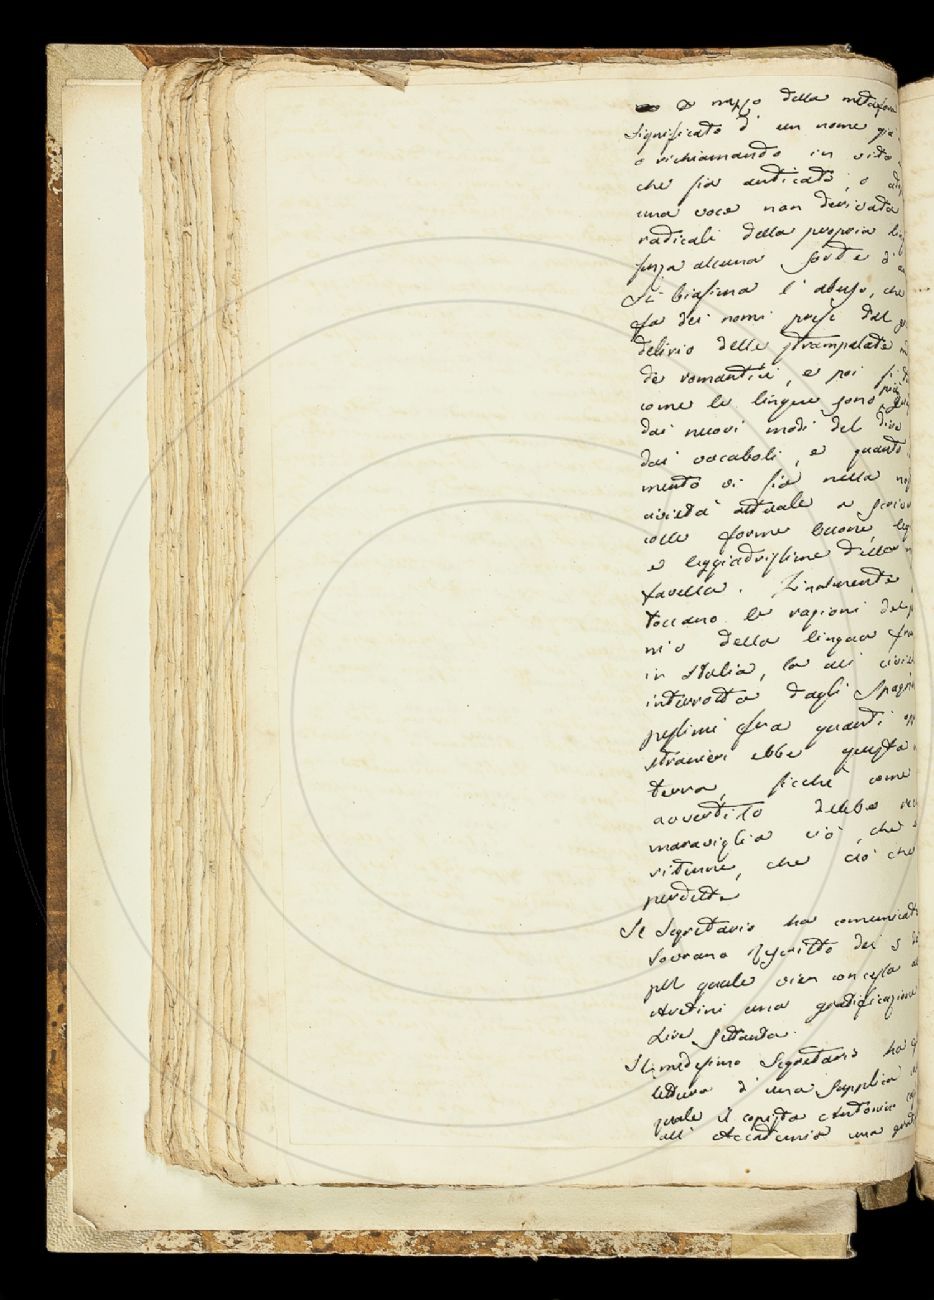 o mezzo della metafora
significato d' un nome già
o richiamando in vita
che sia anticato, o
una voce non derivata
radicali della propria
senza alcuna sorte d'
Si biasima l' abuso, che
fa dei nomi presi dal
delirio delle strampalate
de romantici, e poi si
come le lingue sono più
dai nuovi modi del dire
dai vocaboli, e quanto
mento vi sia nella
attuale a
colle forme buone,
e leggiadrissime della
favella. Finalmente
toccano le ragioni del
nio della lingua
in Italia, la di cui
interrotta dagli
pessimi fra quanti
stranieri ebbe questa
terra, sicché come
avvertito debbe
maraviglia ciò, che
ritenne, che ciò che
perdette
Il Segretario ha comunicato
Sovrano rescritto dei 5
pel quale vien concessa
una gratificazione
Lire settanta.
Il medesimo Segretario ha
lettura d' una supplica
quale il copista Antonio
all' Accademia una